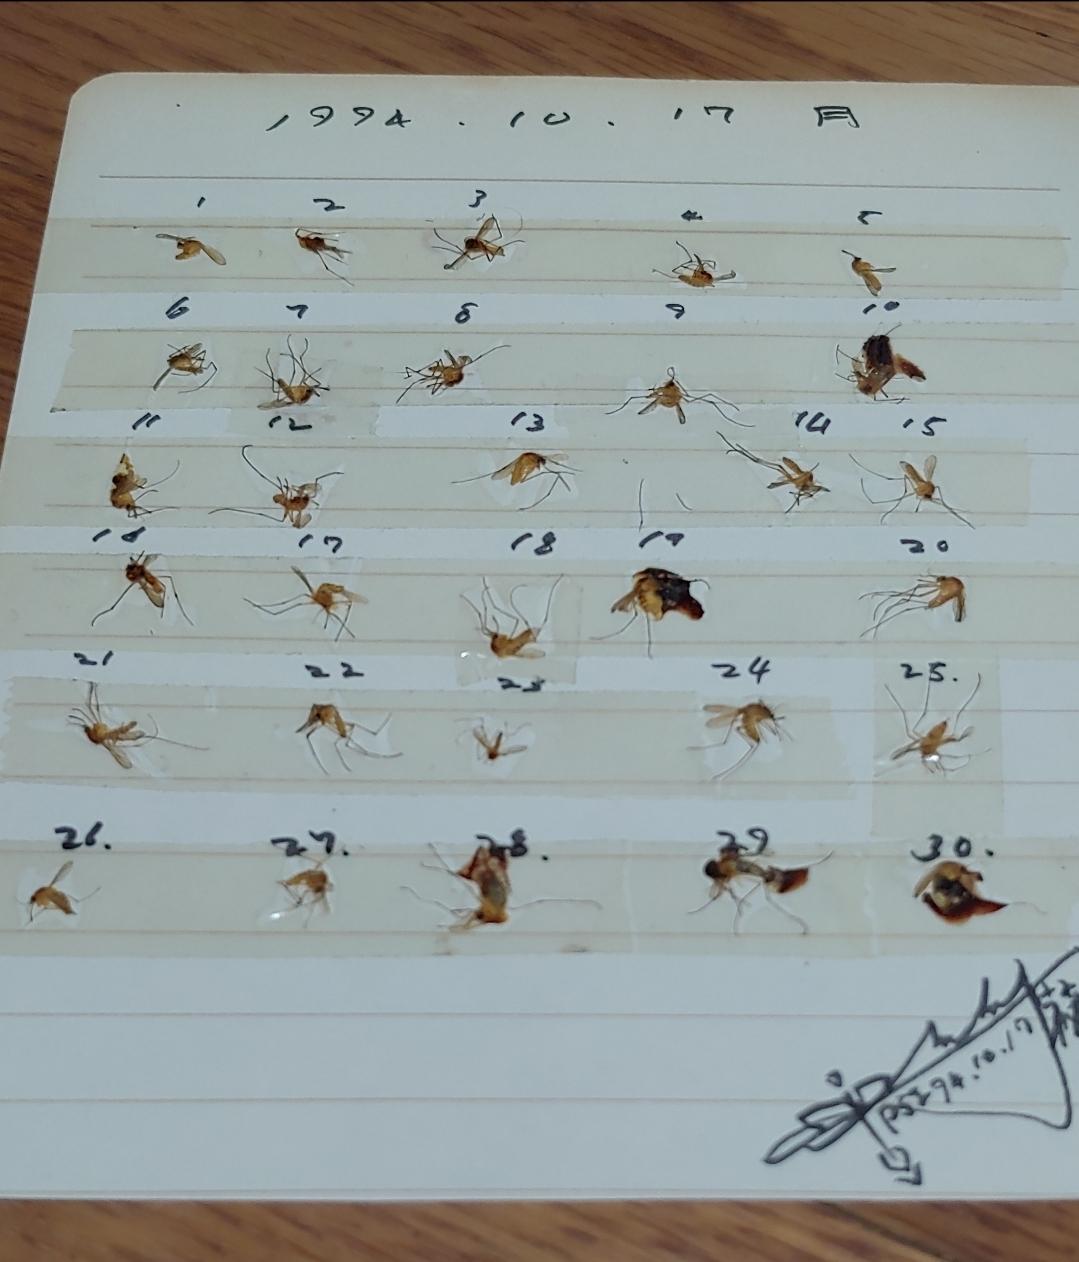 1994.10.17 月
1 2 3 4 5
6 7 8 9 10
11 12 13 14 15
16 17 18 19 20
21 22 23 24 25.
26. 27. 28. 29 30.
94.10.17